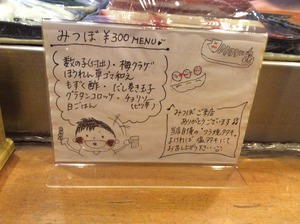 みつぼ ¥300 MENU♪
数の子(江出)・梅クラゲ
ほうれん草ゴマ和え
もずく酢・だし巻き玉子
グラタンコロッケ・チョリソー
白ごはん (ピリ辛)
みつぼご来店
ありがとうございます♪
当店自慢の
よければ 塩タタキにて
お召し上がりください